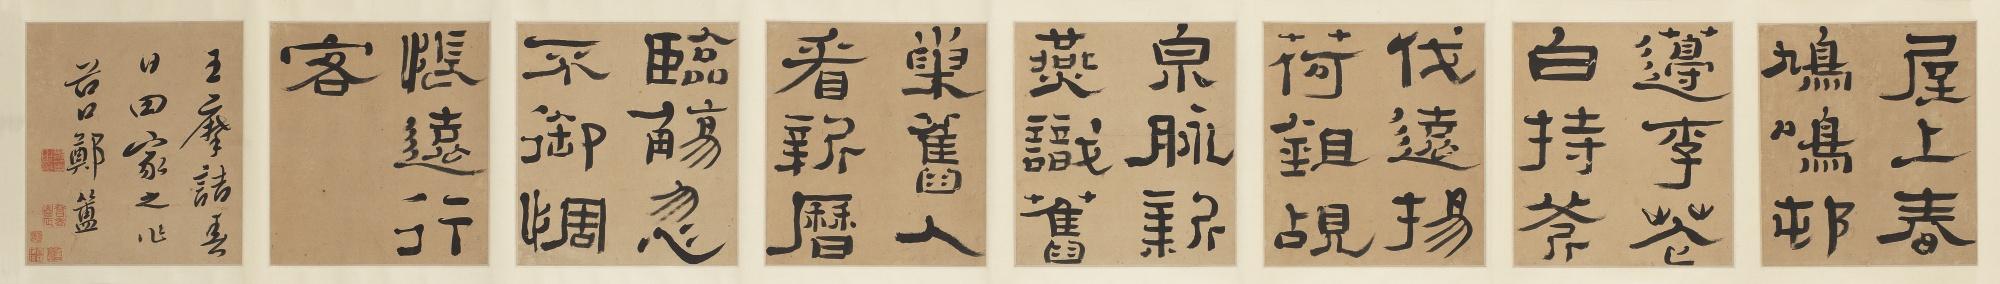 屋上春
鳩鳴邨
邊李花
白持斧
伐遠揚
荷鉏覘
泉脉新
燕識舊
巢舊人
看新曆
臨觴忽
不御惆
悵遠行
客
王摩詰春
日田家之作
谷口鄭簠